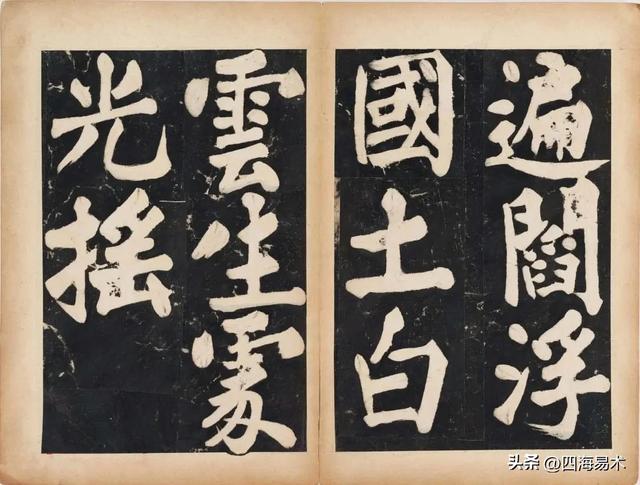 遍閻浮
國土白
雲生處
光搖
头条 @四海易木